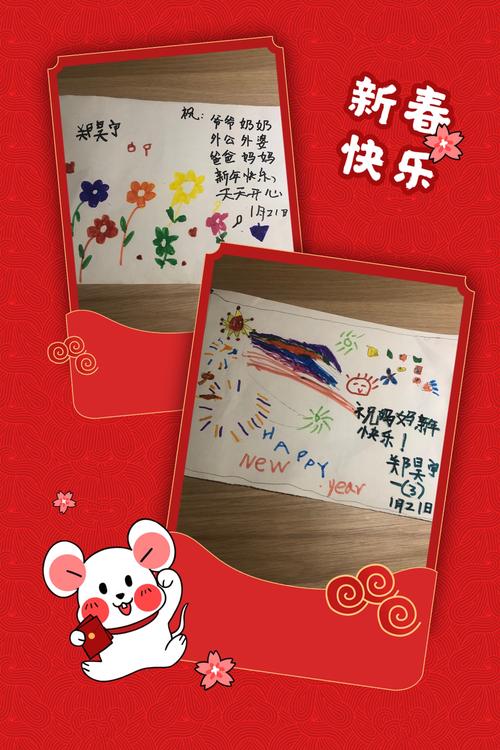 新春
快乐
郑昊宁
祝：
爷爷 奶奶
外公 外婆
爸爸 妈妈
新年快乐，
天天开心
1月21日
祝妈妈新年
快乐！
HAPPY
NEW
year
郑昊宁
一(3)
1月21日